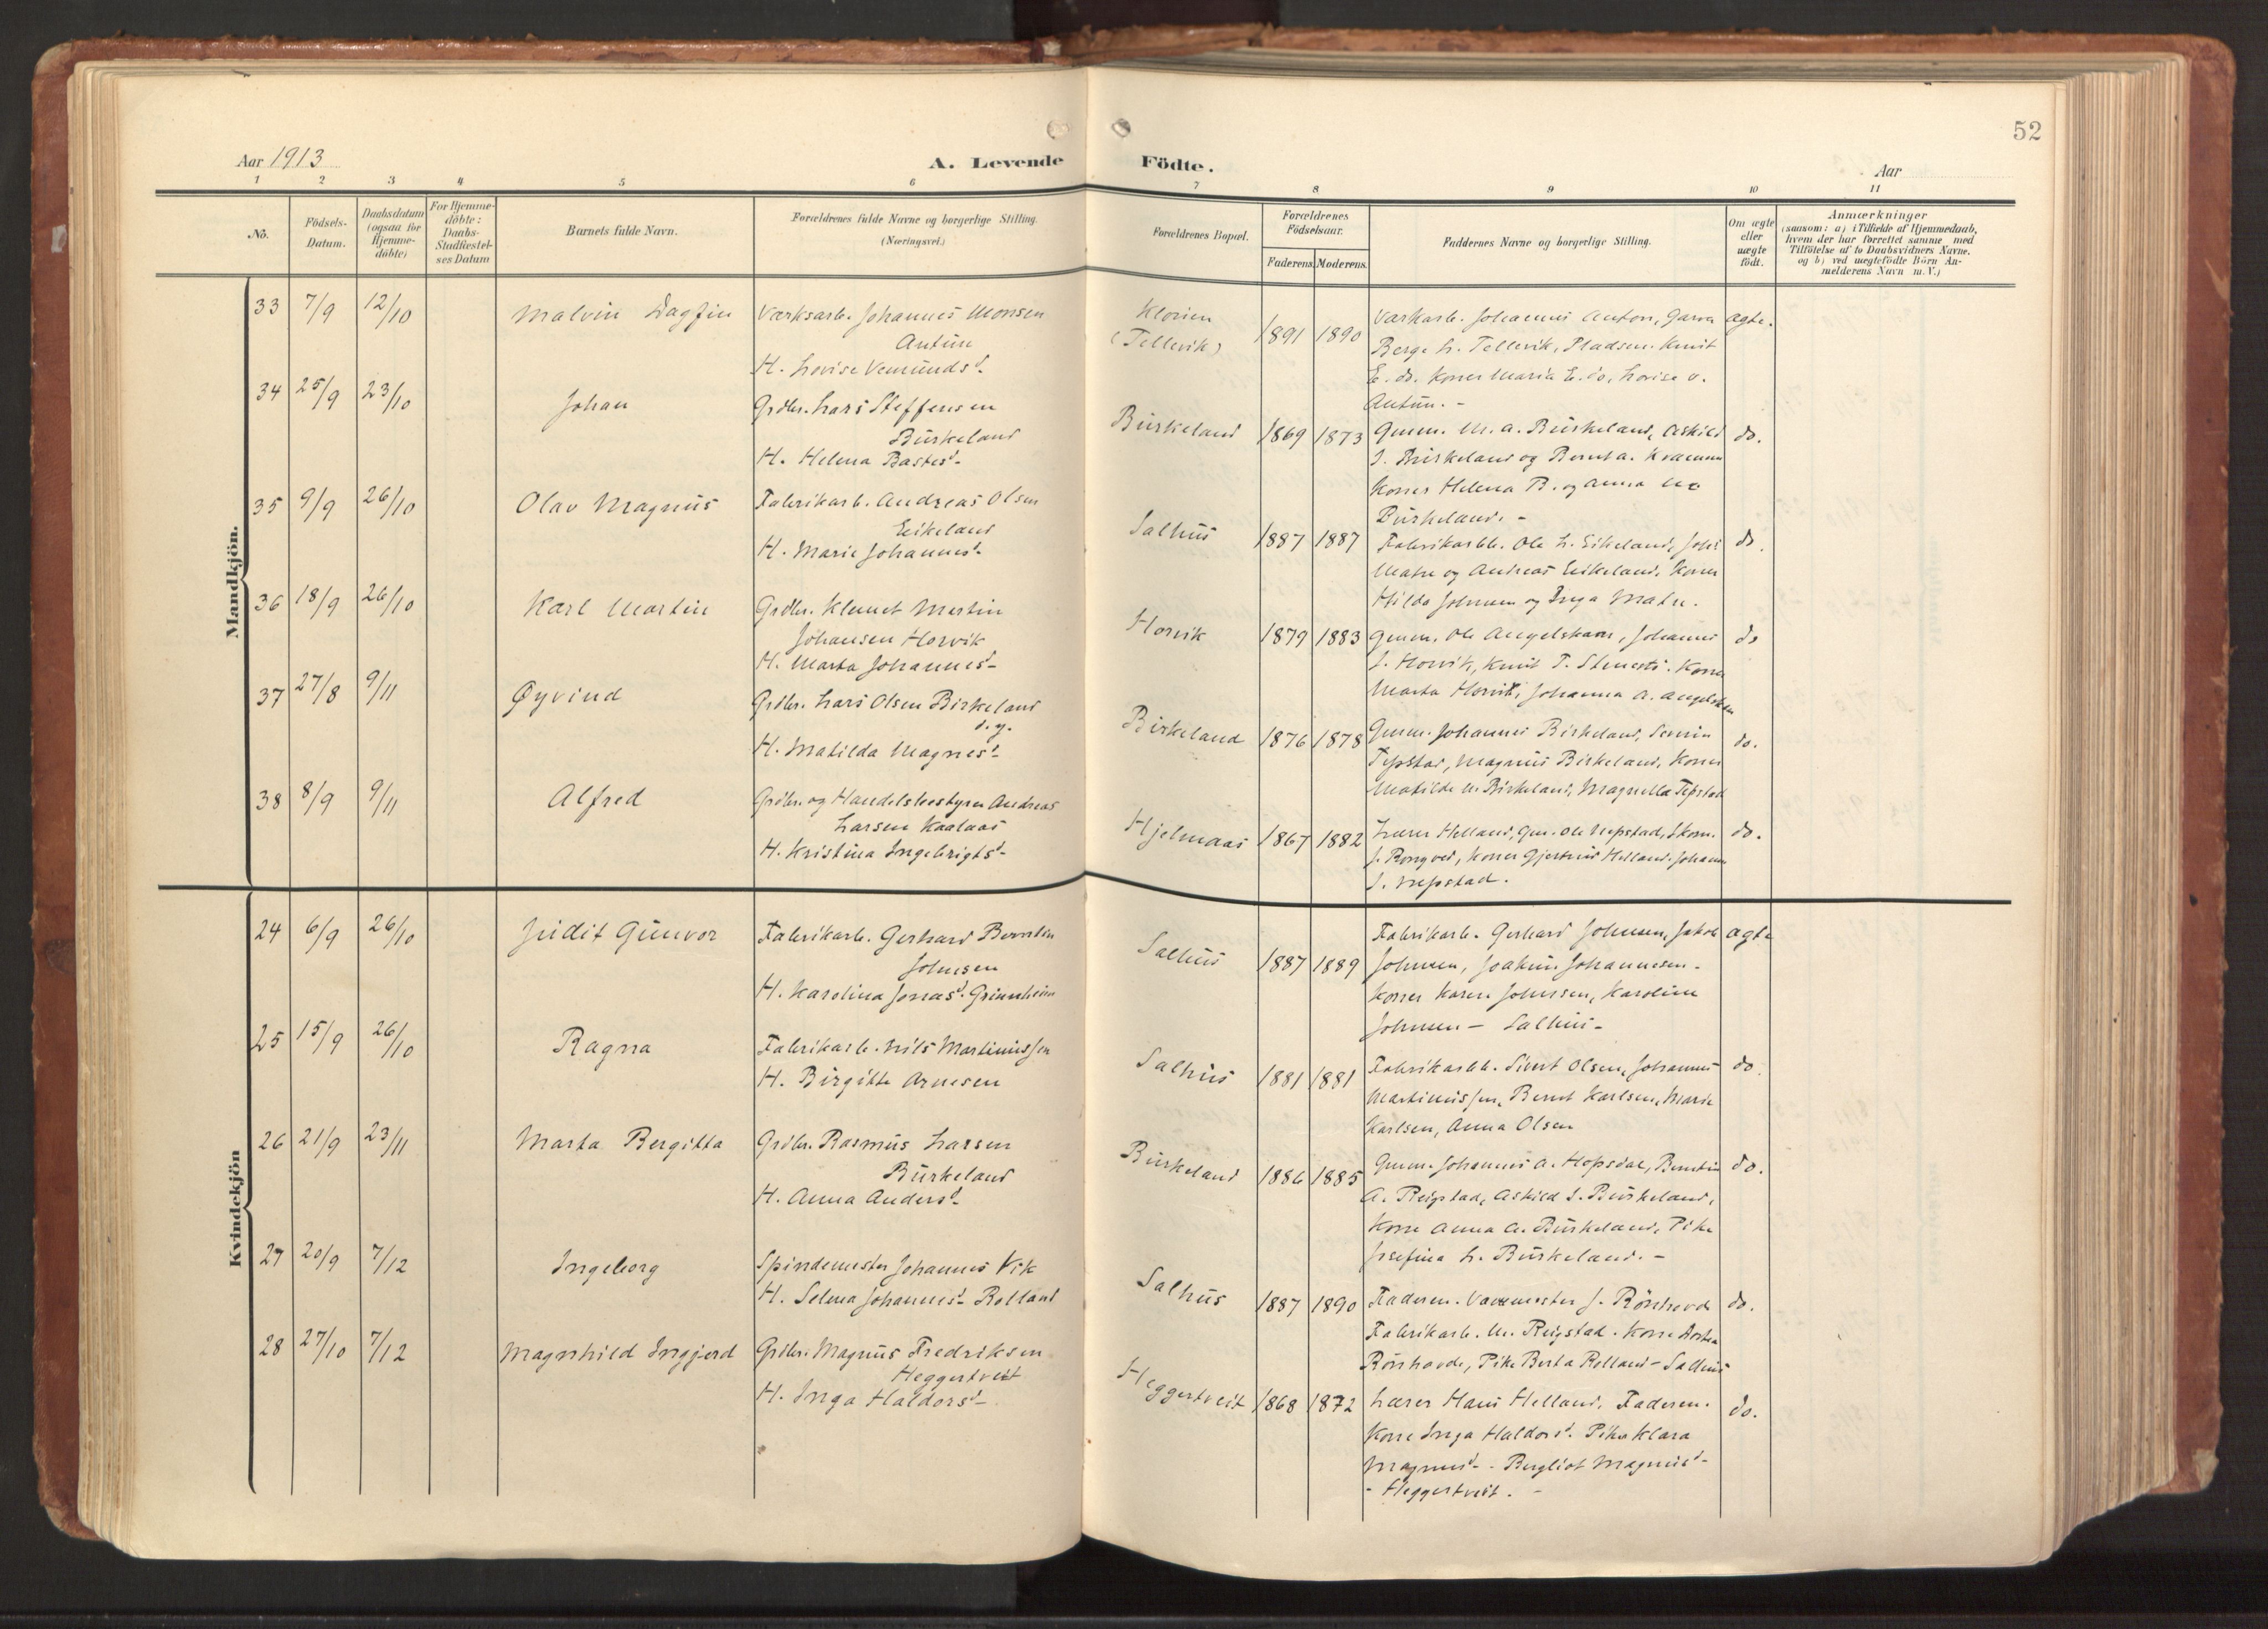 52
Aar 1913
A. Levende Födte.
Aar
1 2 3 4 5 6 7 8 9 10 11
No.
Födsels-Datum.
Daabsdatum (ogsaa for Hjemme-döbte)
For Hjemme-döbte: Daabs-Stadfæstel-ses Datum
Barnets fulde Navn.
Forældrenes fulde Navne og borgerlige Stilling. (Næringsvei.)
Forældrenes Bopæl.
Forældrenes Födselsaar.
Faderens. Moderens.
Faddernes Navne og borgerlige Stilling.
Om ægte eller uægte födt.
Anmærkninger
(saasom: a) i Tilfælde af Hjemmedaab,
hvem der har forrettet samme med
Tilföielse af to Daabsvidners Navne,
og b) ved uægtefödte Börn An-
melderens Navn m. V.)
Mandkjön.
33 7/9 12/10 Malvin Dagfin Værksarb. Johannes Monsen
Antun
H. Lovise Vemunds d.-
Klovien
(Tellevik)
1891 1890
Værkarb. Johannes Anton, Garver
Berge L. Tellevik, Pladsm. Knut
E. do. Koner Maria E. do, Lovise v.
Antun. -
ægte.
34 25/9 23/10 Johan Grdbr. Lars Steffensen
Burkeland
H. Helena Bastes d.-
Burkeland 1869 1873
Gmm. M. A. Burkeland, Askild
S. Burkeland og Bernt A. Kvamme
Koner Helena B. og Anna
Burkeland. -
do.
35 9/9 26/10 Olav Magnus Fabrikarb. Andreas Olsen
Eikeland
H. Marie Johannes d.-
Salhus 1887 1887
Fabrikarbb. Ole L. Eikeland, Johs
Matre og Andreas Eikeland. Koner
Hilda Johnsen og Inga Matre.
do.
36 18/9 26/10 Karl Martin Grdbr. Klemet Mertin
Johansen Horvik
H. Marta Johannes d.-
Horvik 1879 1883
Gmm. Ole Angelskaar, Johannes
J. Horvik, Knut T. Koner
Marta Horvik, Johanna A. Angelskaar
do
37 27/8 9/11 Øyvind Grdbr. Lars Olsen Birkeland
d.y.
H. Matilda Magnes d.-
Birkeland 1876 1878
Gmm. Johannes Birkeland,
Tepstad, Magnus Birkeland, Koner
Matilde M. Birkeland, Magnella Tepstad
do.
38 8/9 9/11 Alfred Grdbr. og Handelsbestyrer Andreas
Larsen Kaalaas
H. Kristina Ingebrigts d.-
Hjelmaas 1867 1882
Lærer Helland, Gm. Ole Nepstad, Skom.
J. Rongved, Koner Gjertrud Helland, Johanna
S. Nepstad.
do.
Kvindekjön
24 6/9 26/10 Judit Gunvor Fabrikarb. Gerhard Berntin
Johnsen
H. Karolina Jonas d. Grimheim
Salhus 1887 1889
Fabrikarb. Gerhard Johnsen, Jakob
Johnsen, Joakim Johannesen.
Koner Karen Johnsen, Karoline
Johnsen - Salhus -
ægte
25 15/9 26/10 Ragna Fabrikarb. Nils Martinussen
H. Birgitte Arnesen
Salhus 1881 1881
Fabrikarbb. Sivert Olsen, Johannes
Martinussen, Bernt Karlsen, Marie
Karlsen, Anna Olsen
do.
26 21/9 23/11 Marta Bergitta Grdbr. Rasmus Larsen
Burkeland
H. Anna Anders d.-
Burkeland 1886 1885
Gmm. Johannes A. Hopsdal, Berntin
A. Reigstad, Askild S. Burkeland,
Kone Anna A. Burkeland, Pike
Josefina L. Burkeland. -
do.
27 20/9 7/12 Ingeborg Spindemester Johannes Vik
H. Selma Johannes d. Rolland
Salhus 1887 1890
Faderen. Vævemester J. Rönhovde
Fabrikarb. M. Reigstad. Kone Dortea
Rönhovde, Pike Berta Rolland - Salhus
do.
28 27/10 7/12 Magnhild Ingjerd Grdbr. Magnus Fredriksen
Heggertveit
H. Inga Haldors d.-
Heggertveit 1868 1872
Lærer Hans Helland. Faderen.
Kone Inga Haldors d. Pike Klara
Magnus d. - Bergliot Magnus d. -
- Heggertveit. -
do.